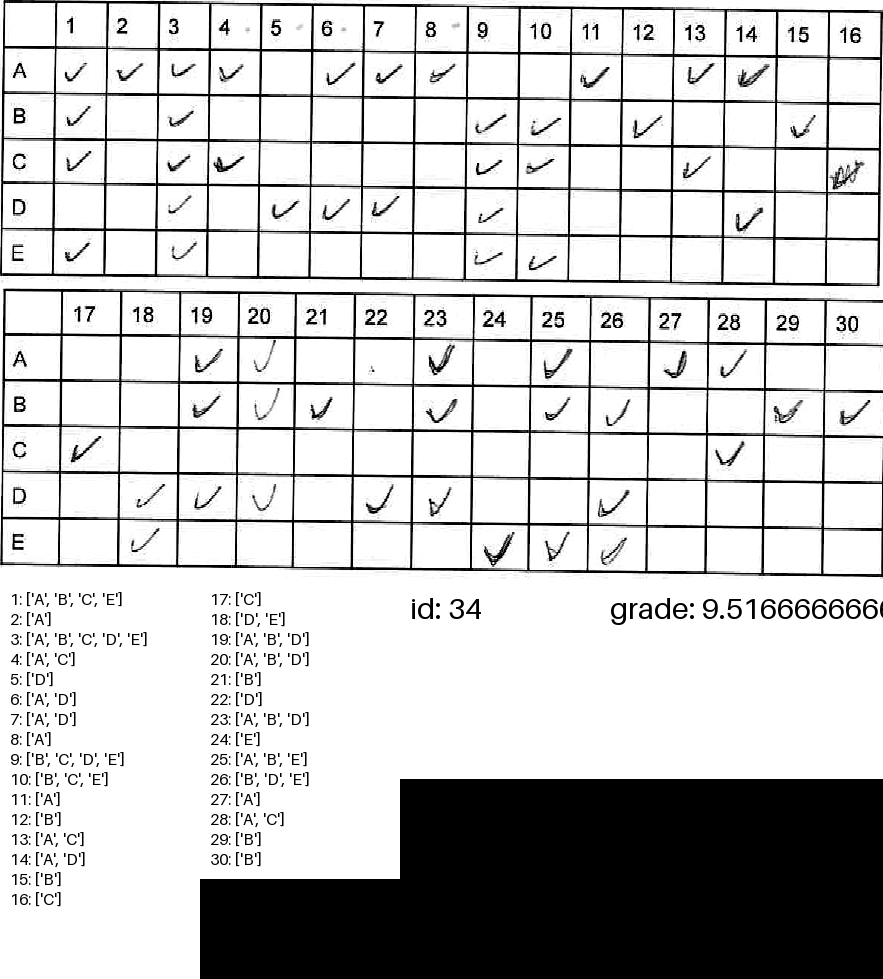 1 2 3 4 5 6 7 8 9 10 11 12 13 14 15 16
A ✓ ✓ ✓ ✓ ✓ ✓ ✓ ✓ ✓ ✓
B ✓ ✓ ✓ ✓ ✓ ✓
C ✓ ✓ ✓ ✓ ✓ ✓
D ✓ ✓ ✓ ✓ ✓ ✓
E ✓ ✓ ✓ ✓
17 18 19 20 21 22 23 24 25 26 27 28 29 30
A ✓ ✓ ✓ ✓ ✓ ✓
B ✓ ✓ ✓ ✓ ✓ ✓ ✓ ✓
C ✓ ✓
D ✓ ✓ ✓ ✓ ✓ ✓
E ✓ ✓ ✓ ✓
1: ['A', 'B', 'C', 'E']
2: ['A']
3: ['A', 'B', 'C', 'D', 'E']
4: ['A', 'C']
5: ['D']
6: ['A', 'D']
7: ['A', 'D']
8: ['A']
9: ['B', 'C', 'D', 'E']
10: ['B', 'C', 'E']
11: ['A']
12: ['B']
13: ['A', 'C']
14: ['A', 'D']
15: ['B']
16: ['C']
17: ['C']
18: ['D', 'E']
19: ['A', 'B', 'D']
20: ['A', 'B', 'D']
21: ['B']
22: ['D']
23: ['A', 'B', 'D']
24: ['E']
25: ['A', 'B', 'E']
26: ['B', 'D', 'E']
27: ['A']
28: ['A', 'C']
29: ['B']
30: ['B']
id: 34
grade: 9.5166666666